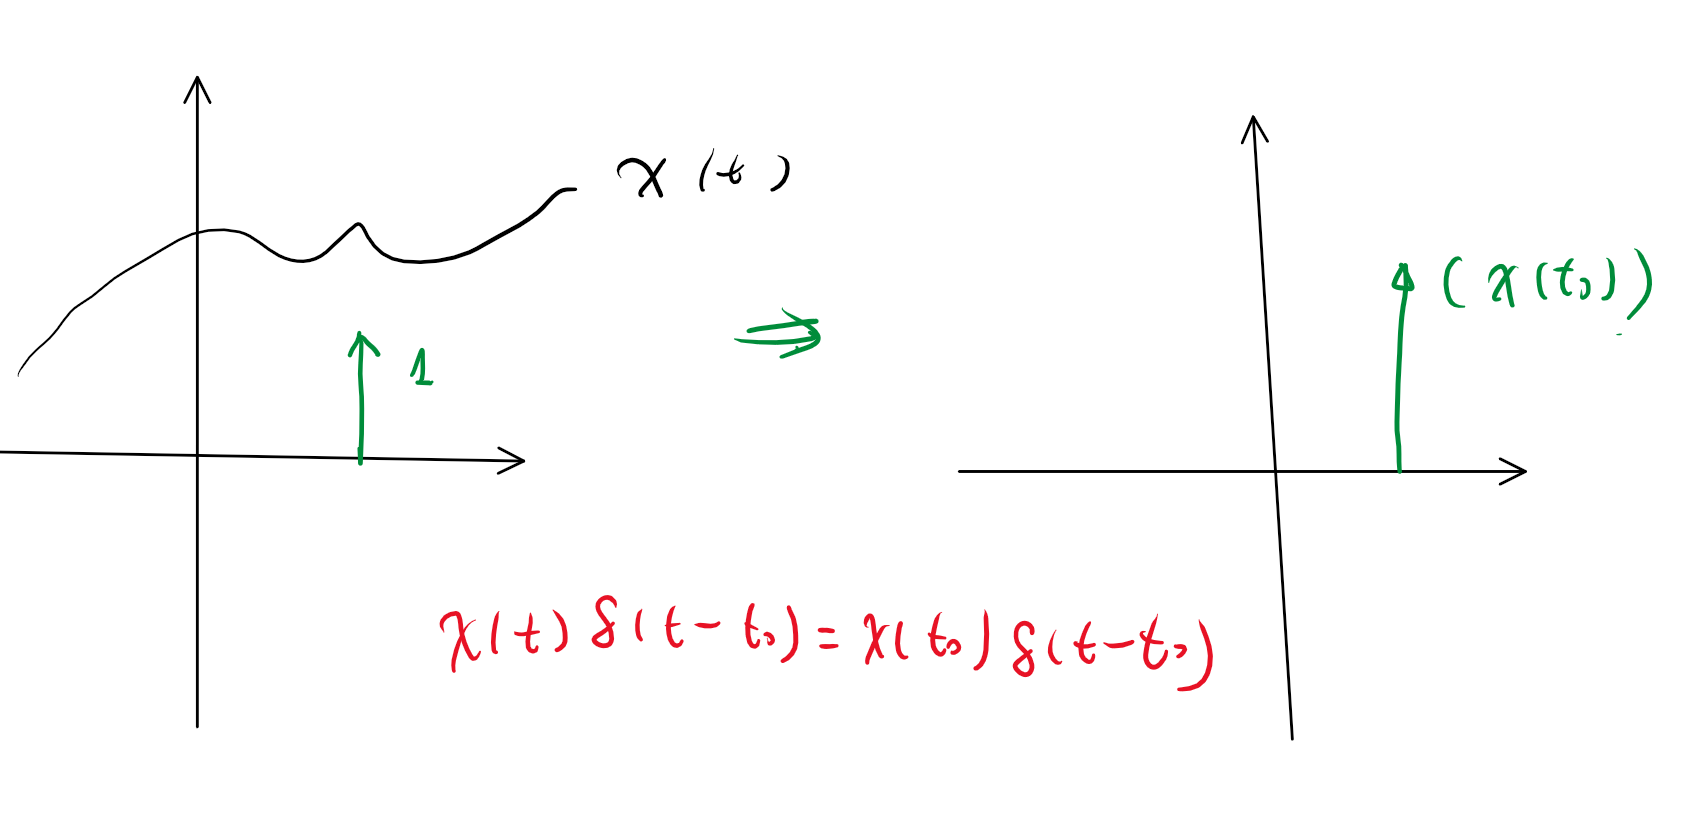 x(t)
1
(x(t₀))
x(t) δ(t-t₀) = x(t₀) δ(t-t₀)